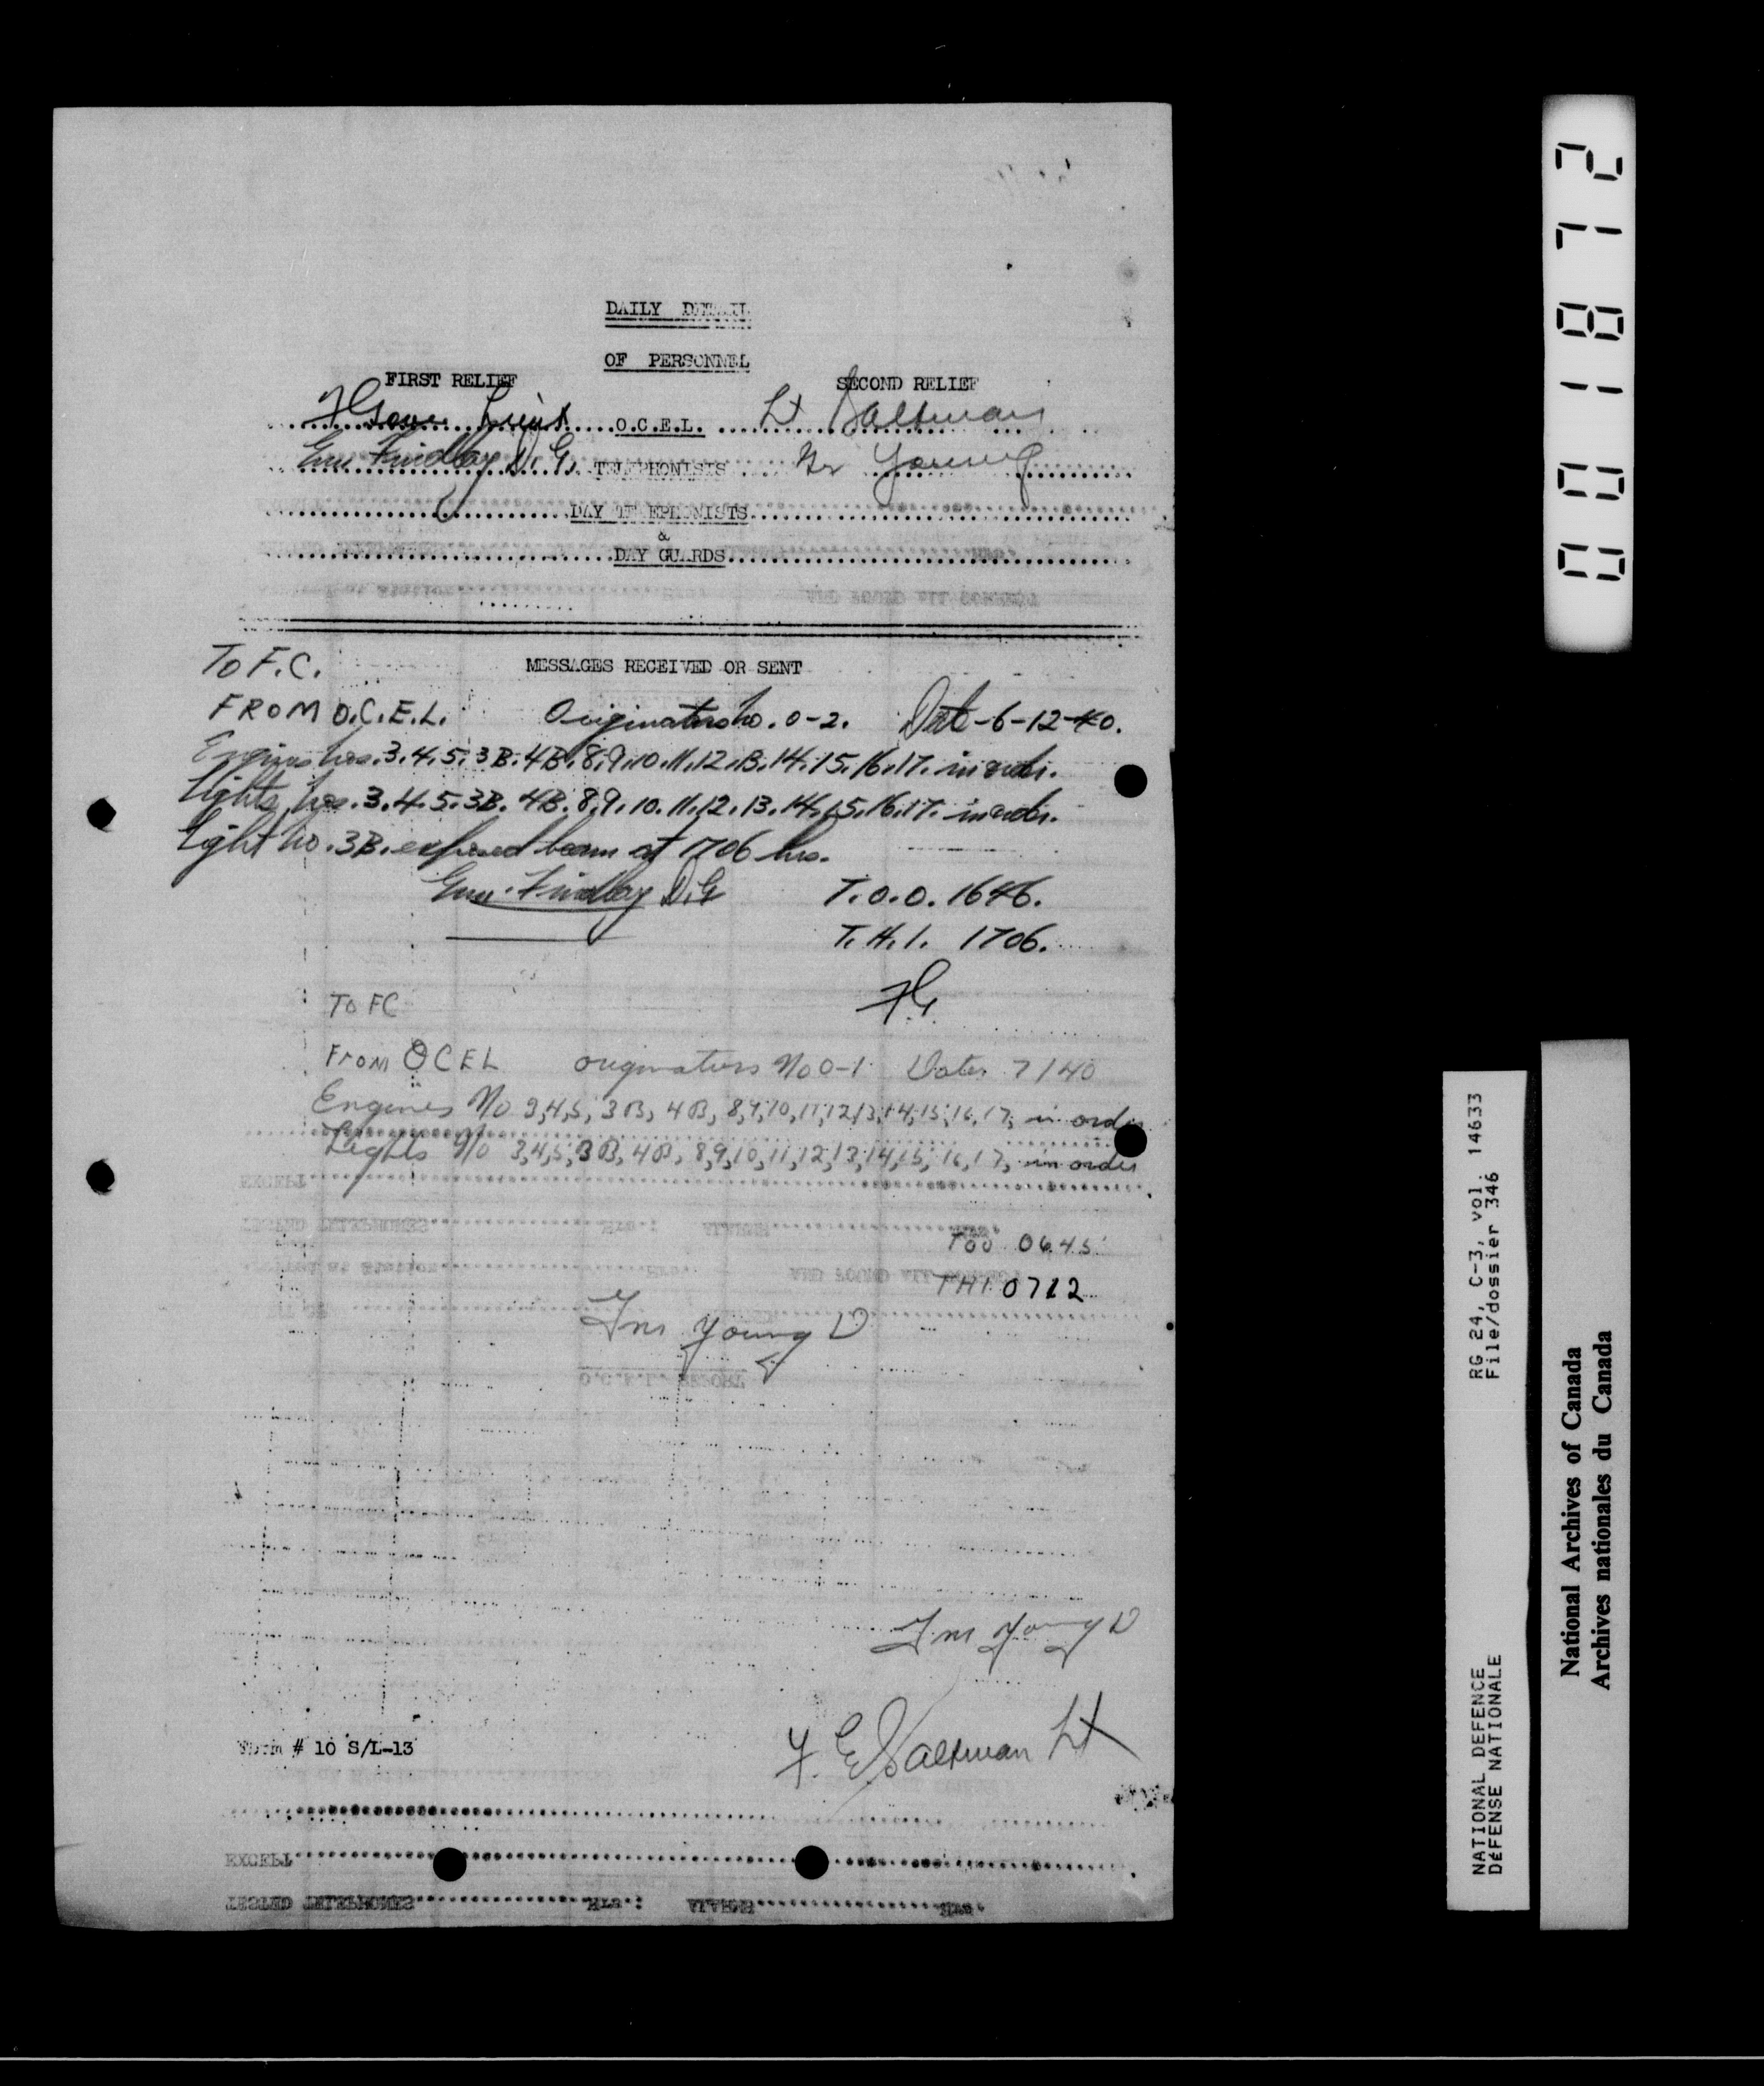 DAILY DETAIL
OF PERSONNEL
FIRST RELIEF SECOND RELIEF
Lieut O.C.E.L. Lt Saltman
Gnr Findlay D.G. TELEPHONISTS Gnr Young
DAY TELEPHONISTS
&
DAY GUARDS
To F.C. MESSAGES RECEIVED OR SENT
FROM O.C.E.L. Originators no. 0-2. Date-6-12-40.
Engines nos. 3.4.5.3B.4B.8.9.10.11.12.13.14.15.16.17. in order.
Lights nos. 3.4.5.3B.4B.8.9.10.11.12.13.14.15.16.17. in order.
Light no. 3B. exposed beam at 1706 hrs.
Gnr. Findlay D.G T.O.O. 1646.
T.H.I. 1706.
F.G.
To FC
From OCEL originators No 0-1 Date 7/40
Engines No 3,4,5, 3B, 4B, 8,9,10,11,12,13,14,15,16,17, in order
Lights No 3,4,5,3B,4B, 8,9,10,11,12,13,14,15, 16,17, in order
TOO 0645
THI 0712
Gnr Young D
Gnr Young D
Form # 10 S/L-13
F. E. Saltman Lt
EXCEPT
TESTED TELEPHONES Hrs.: ALARM Hrs.
0001872
RG 24, C-3, vol. 14633
File/dossier 346
NATIONAL DEFENCE
DÉFENSE NATIONALE
National Archives of Canada
Archives nationales du Canada